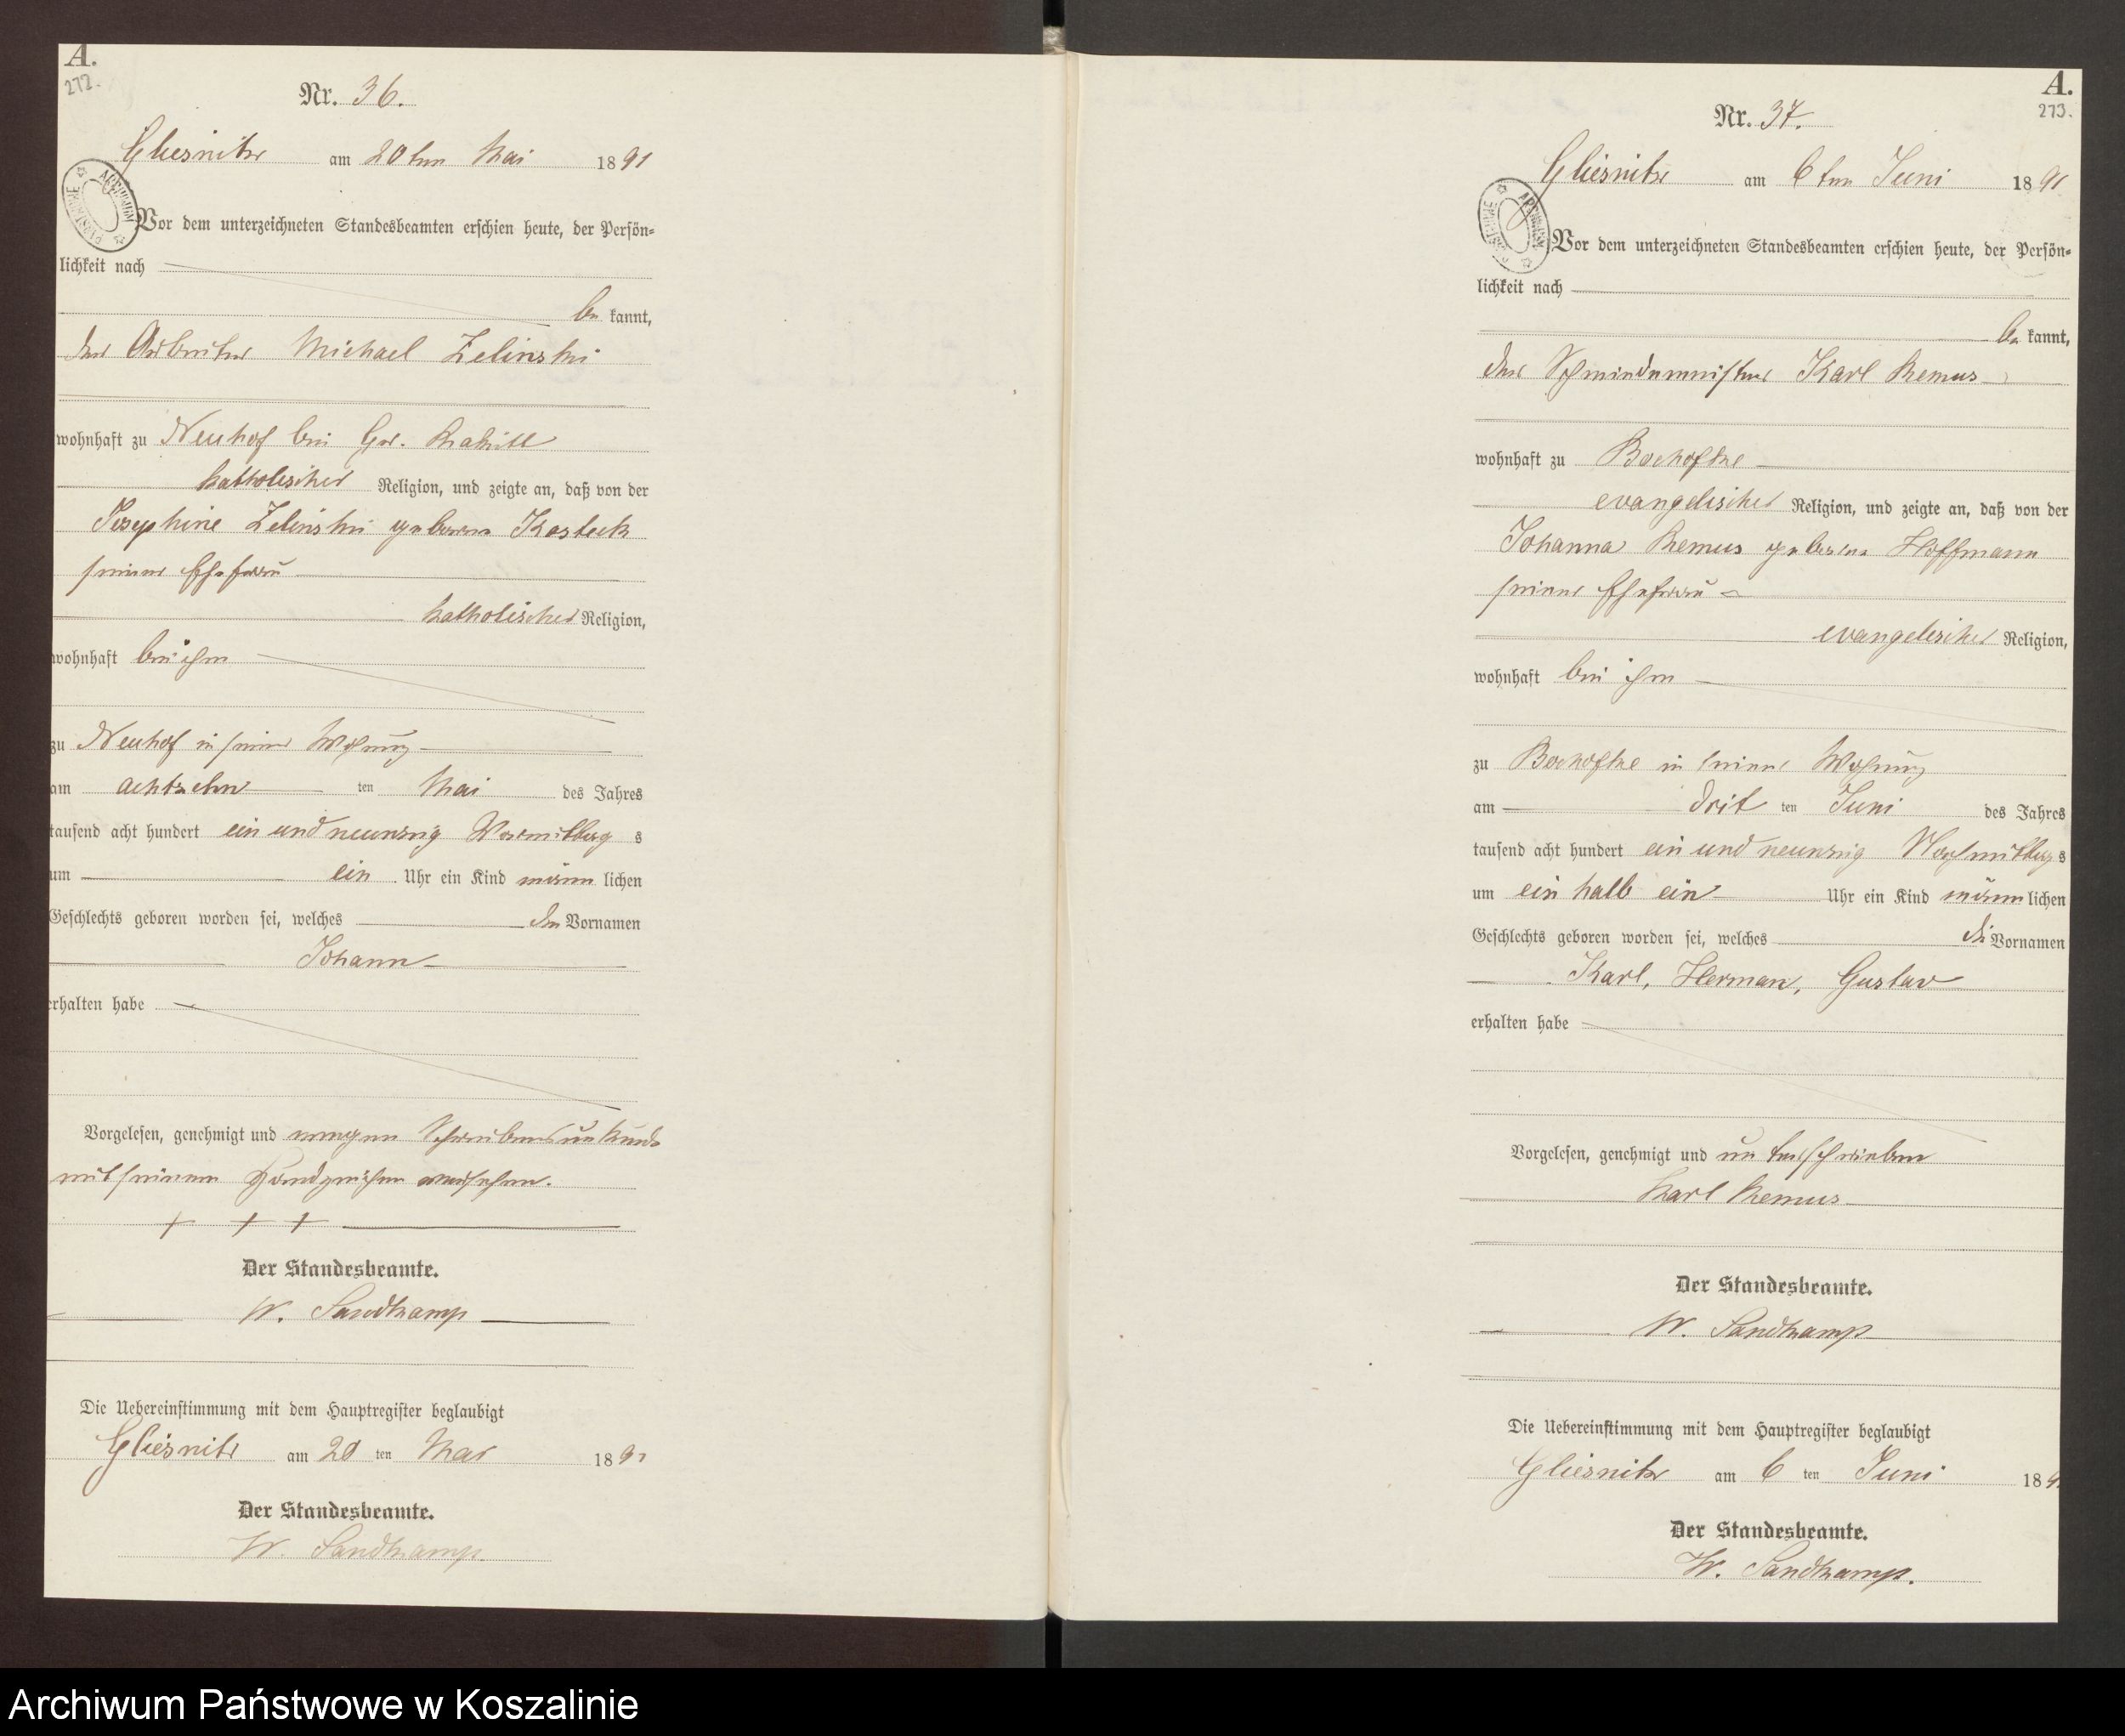 A.
272.
Nr. 36.
Gliesnitz am 20ten Mai 1891
Vor dem unterzeichneten Standesbeamten erschien heute, der Persön=
lichkeit nach
be kannt,
der Arbeiter Michael Zelinski
wohnhaft zu Neuhof bei Gr. Rakitt
katholischer Religion, und zeigte an, daß von der
Josephine Zelinski geborene Kosteck
seiner Ehefrau
katholischer Religion,
wohnhaft bei ihm
zu Neuhof in seiner Wohnung
am achtzehn ten Mai des Jahres
tausend acht hundert ein und neunzig Vormittag s
um ein Uhr ein Kind männ lichen
Geschlechts geboren worden sei, welches den Vornamen
Johann
erhalten habe
Vorgelesen, genehmigt und wegen Schreibensunkunde
mit seinem Handzeichen versehen.
+ + +
Der Standesbeamte.
W. Sandkamp
Die Uebereinstimmung mit dem Hauptregister beglaubigt
Gliesnitz am 20 ten Mai 1891
Der Standesbeamte.
W. Sandkamp
A.
273.
Nr. 37.
Gliesnitz am 6ten Juni 1891
Vor dem unterzeichneten Standesbeamten erschien heute, der Persön=
lichkeit nach
be kannt,
der Schmiedemeister Karl Remus
wohnhaft zu Bochofke
evangelischer Religion, und zeigte an, daß von der
Johanna Remus geborene Hoffmann
seiner Ehefrau
evangelischer Religion,
wohnhaft bei ihm
zu Bochofke in seiner Wohnung
am drit ten Juni des Jahres
tausend acht hundert ein und neunzig Nachmittag s
um ein halb ein Uhr ein Kind männ lichen
Geschlechts geboren worden sei, welches die Vornamen
Karl, Herman, Gustav
erhalten habe
Vorgelesen, genehmigt und unterschrieben
Karl Remus
Der Standesbeamte.
W. Sandkamp
Die Uebereinstimmung mit dem Hauptregister beglaubigt
Gliesnitz am 6 ten Juni 189
Der Standesbeamte.
W. Sandkamp.
Archiwum Państwowe w Koszalinie